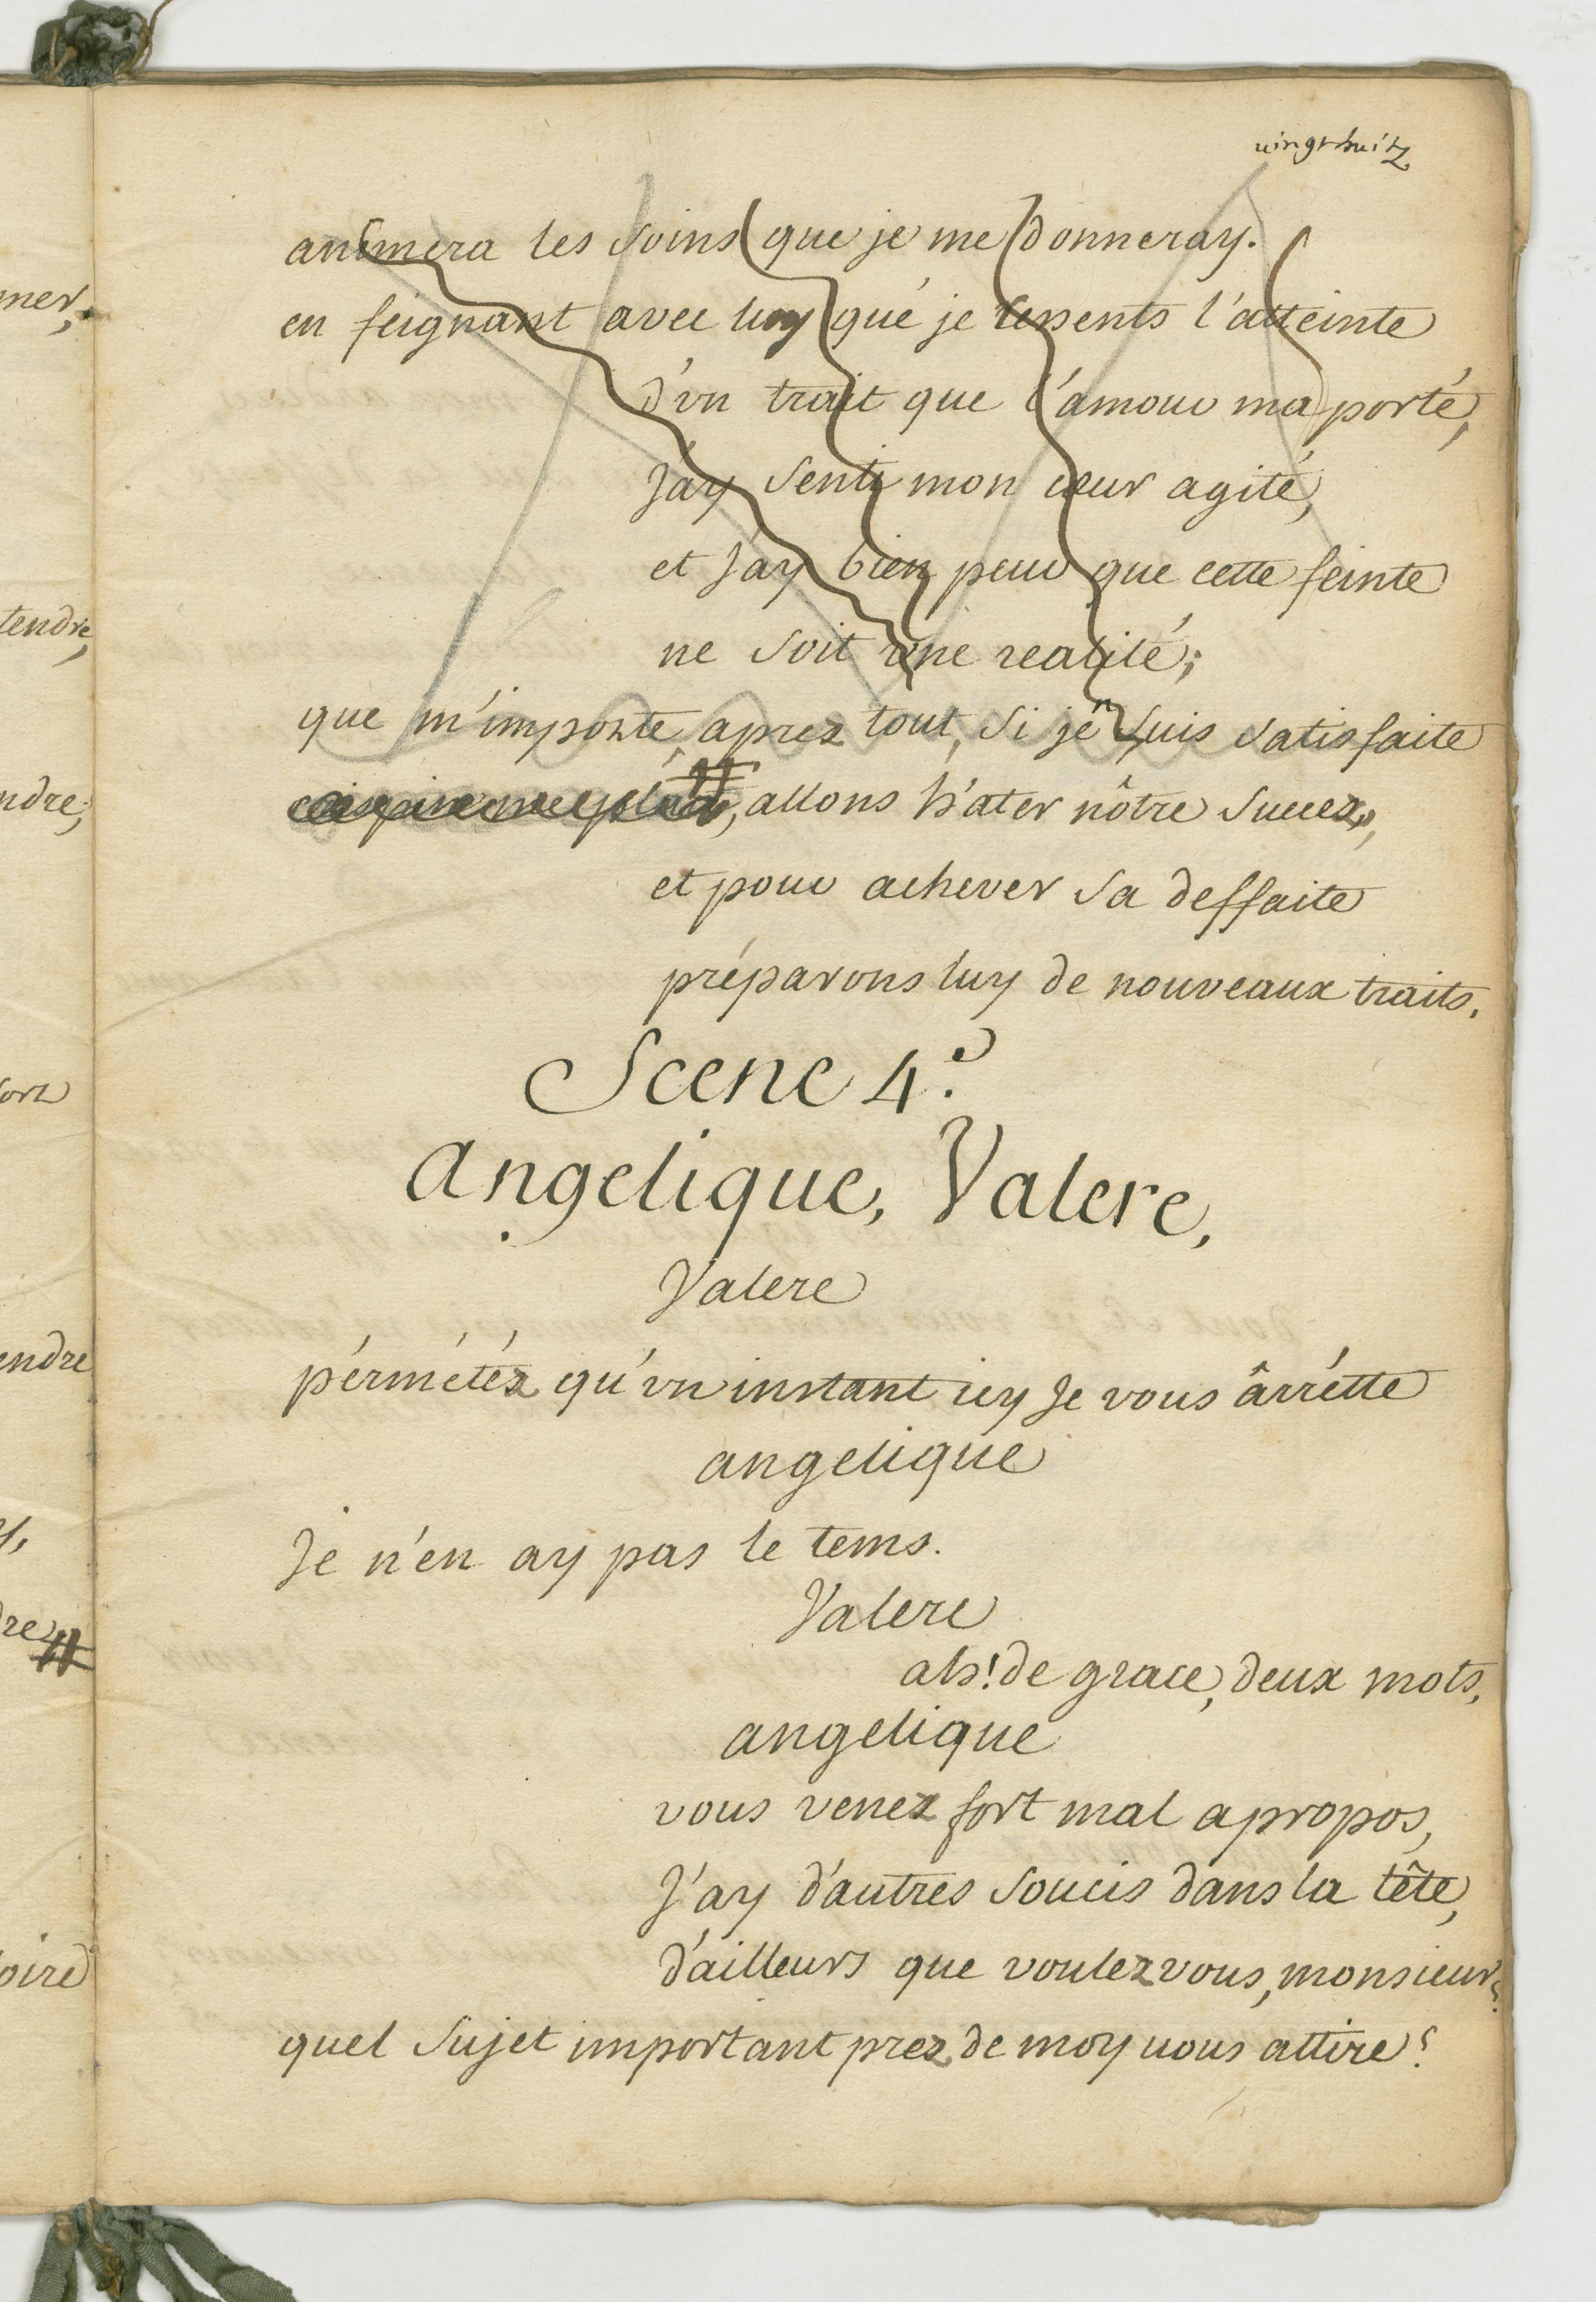 vingt huit
mer,
tendre,
ndre;
endre
dre
oire
animera les soins que je me donneray.
en feignant avec luy que je ressents l'atteinte
d'vn trait que l'amour ma porté,
J'ay senti mon cœur agité,
et J'ay bien peur que cette feinte
ne soit vne realité;
que m'importe aprez tout, si j'en suis satisfaite
allons h'ater nôtre succez,
et pour achever sa deffaite
préparons luy de nouveaux traits.
Scene 4.e
Angelique, Valere,
Valere
pérmétéz qu'vn instant icy Je vous ârrétte
angelique
Je n'en ay pas le tems.
Valere
ah! de grace, deux mots,
angelique
vous venez fort mal apropos,
J'ay d'autres soucis dans la tête,
d'ailleurs que voulez vous, monsieur?
quel sujet important prez de moy vous attire?